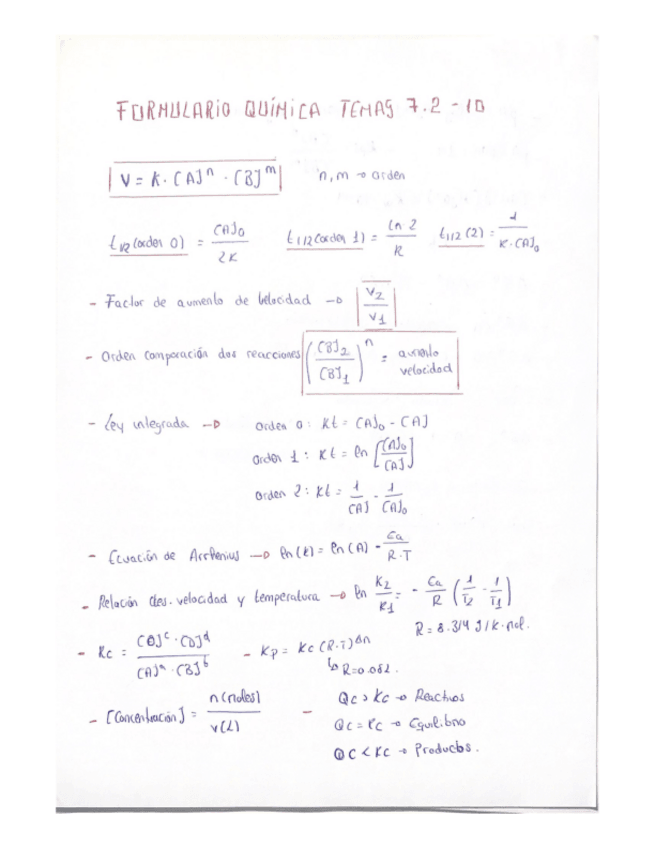 FORMULARIO QUÍMICA TEMAS 7.2 - 10
V = K · [A]ⁿ · [B]ᵐ   n, m → orden
t1/2 (orden 0) = [A]₀ / 2K   t1/2 (orden 1) = Ln 2 / K   t1/2 (2) = 1 / K · [A]₀
- Factor de aumento de velocidad → V₂ / V₁
- Orden comparación dos reacciones ([B]₂ / [B]₁)ⁿ = aumento velocidad
- Ley integrada → orden 0: Kt = [A]₀ - [A]
orden 1: Kt = ln [[A]₀ / [A]]
orden 2: Kt = 1 / [A] - 1 / [A]₀
- Ecuación de Arrhenius → ln(K) = ln(A) - Ea / R·T
- Relación ctes. velocidad y temperatura → ln K₂ / K₁ = - Ea / R (1 / T₂ - 1 / T₁)
R = 8.314 J/K·mol.
- Kc = [C]ᶜ · [D]ᵈ / [A]ᵃ · [B]ᵇ   - Kp = Kc (R·T)^Δn
↳ R = 0.082.
- [Concentración] = n(moles) / V(L)
- Qc > Kc → Reactivos
Qc = Kc → Equilibrio
Qc < Kc → Productos.